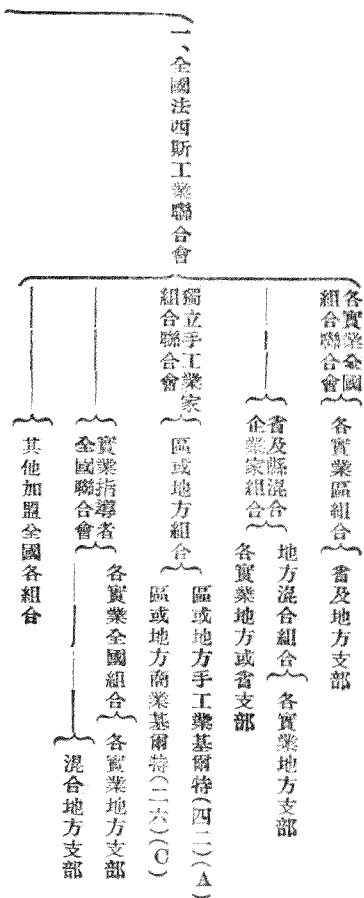 一、全國法西斯工業聯合會
各實業全國
組合聯合會
各實業區組合
省及地方支部
省及縣混合
企業家組合
地方混合組合
各實業地方支部
各實業地方或省支部
獨立手工業家
組合聯合會
區或地方組合
區或地方手工業基爾特(四二)(A)
區或地方商業基爾特(二六)(C)
實業指導者
全國聯合會
各實業全國組合
各實業地方支部
混合地方支部
其他加盟全國各組合